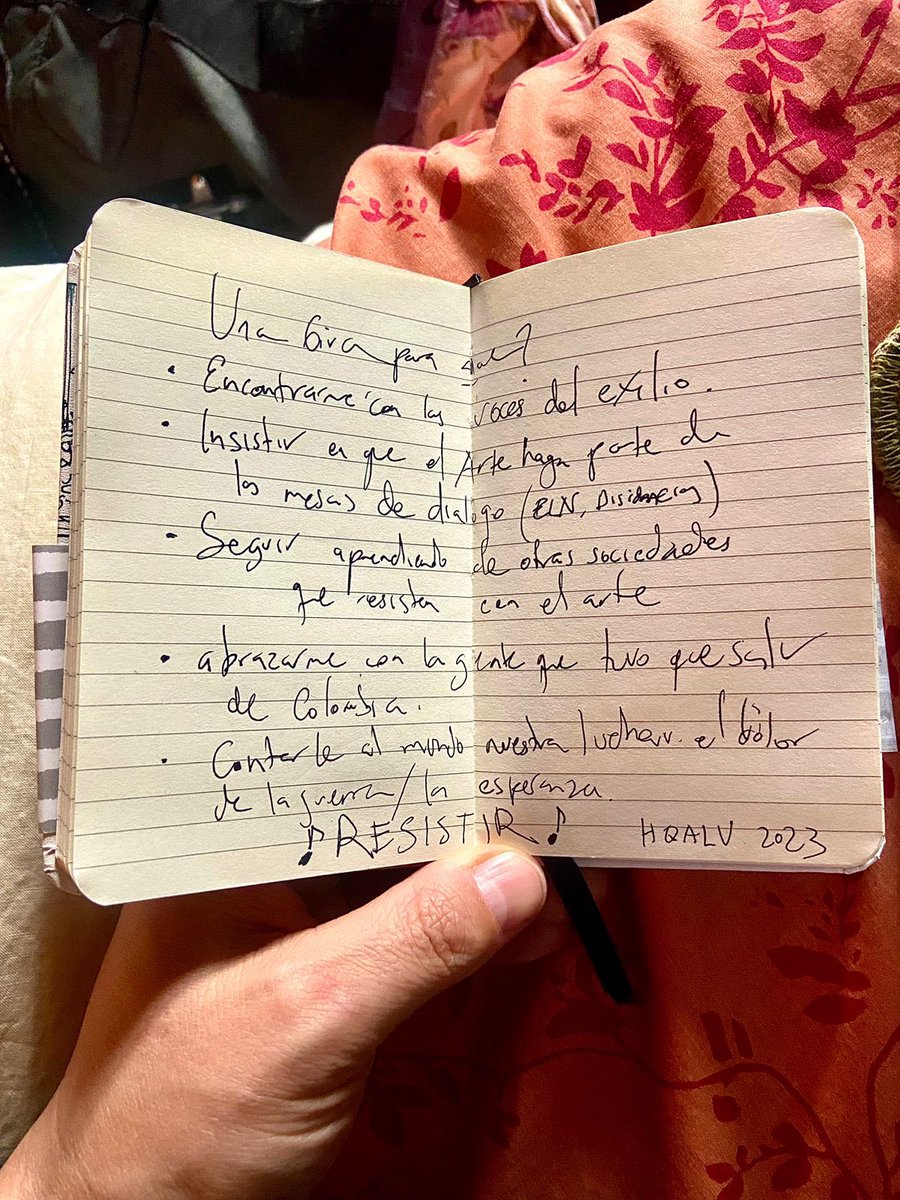 Una Gira para qué?
• Encontrarme con las voces del exilio.
• Insistir en que el Arte haga parte de
las mesas de dialogo (ELN, Disidencias)
• Seguir aprendiendo de otras sociedades
que resisten con el arte
• abrazarme con la gente que tuvo que salir
de Colombia.
• Contarle al mundo nuestra lucha. el dolor
de la guerra/la esperanza.
♪RESISTIR♪ HQALV 2023